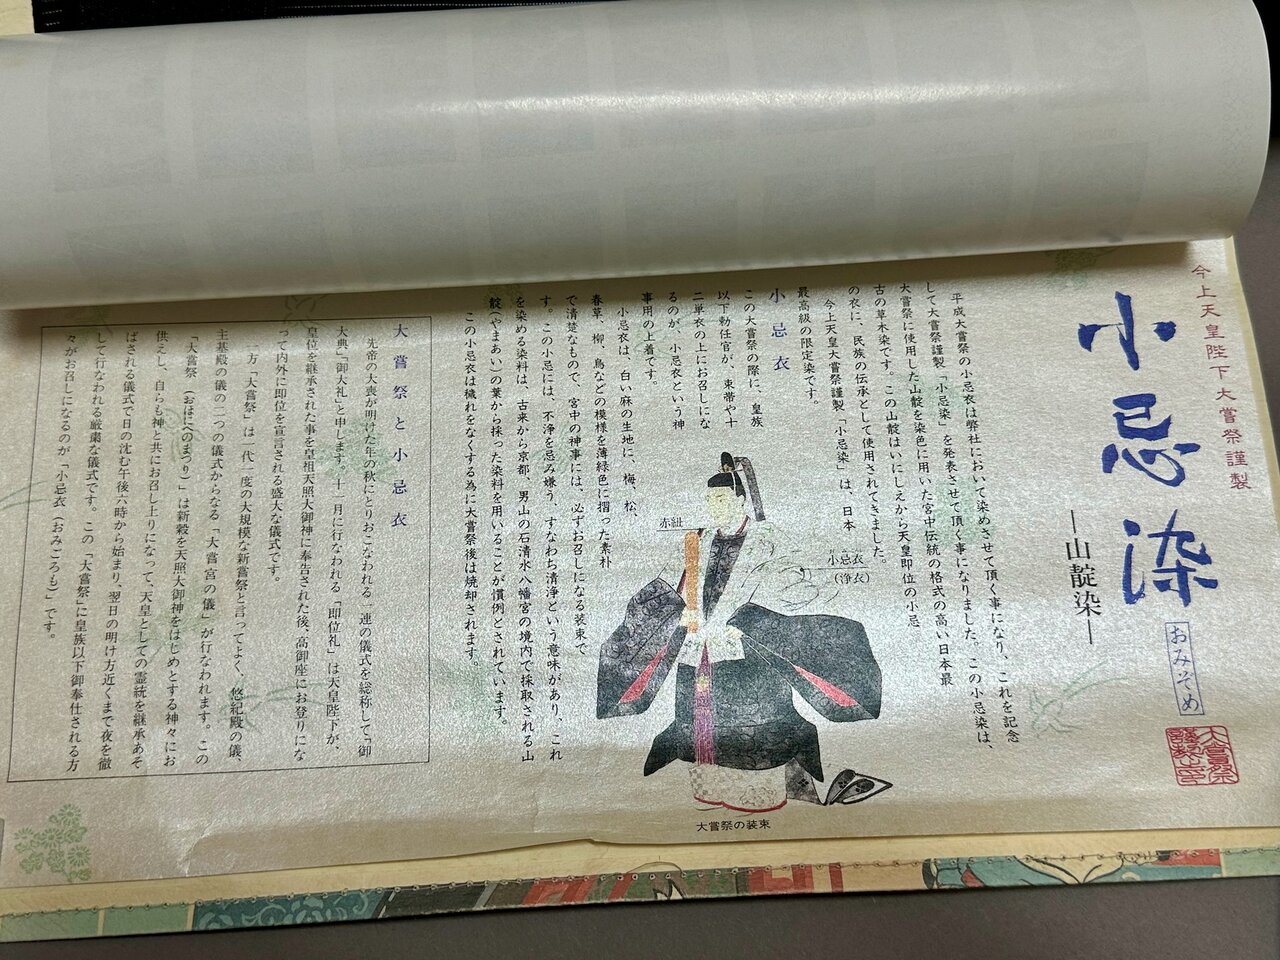 今上天皇陛下大嘗祭謹製
小忌染
おみぞめ
―山靛染―
大嘗祭
平成大嘗祭の小忌衣は弊社において染めさせて頂く事になり、これを記念
して大嘗祭謹製「小忌染」を発表させて頂く事になりました。この小忌染は、
大嘗祭に使用した山靛を染色に用いた宮中伝統の格式の高い日本最
古の草木染です。この山靛はいにしえから天皇即位の小忌
の衣に、民族の伝承として使用されてきました。
今上天皇大嘗祭謹製「小忌染」は、日本
最高級の限定染です。
小忌衣
この大嘗祭の際に、皇族
以下勅任官が、束帯や十
二単衣の上にお召しにな
るのが、小忌衣という神
事用の上着です。
小忌衣は、白い麻の生地に、梅、松、
春草、柳、鳥などの模様を薄緑色に摺った素朴
で清楚なもので、宮中の神事には、必ずお召しになる装束で
す。この小忌には、不浄を忌み嫌う、すなわち清浄という意味があり、これ
を染める染料は、古来から京都、男山の石清水八幡宮の境内で採取される山
靛(やまあい)の葉から採った染料を用いることが慣例とされています。
この小忌衣は穢れをなくする為に大嘗祭後は焼却されます。
赤紐
小忌衣
(浄衣)
大嘗祭の装束
大嘗祭と小忌衣
先帝の大喪が明けた年の秋にとりおこなわれる一連の儀式を総称して「御
大典」「御大礼」と申します。十一月に行なわれる「即位礼」は天皇陛下が、
皇位を継承された事を皇祖天照大御神に奉告された後、高御座にお登りにな
って内外に即位を宣言される盛大な儀式です。
一方「大嘗祭」は一代一度の大規模な新嘗祭と言ってよく、悠紀殿の儀、
主基殿の儀の二つの儀式からなる「大嘗宮の儀」が行なわれます。この
「大嘗祭(おほにへのまつり)」は新穀を天照大御神をはじめとする神々にお
供えし、自らも神と共にお召し上りになって、天皇としての霊統を継承あそ
ばされる儀式で日の沈む午後六時から始まり、翌日の明け方近くまで夜を徹
して行なわれる厳粛な儀式です。この「大嘗祭」に皇族以下御奉仕される方
々がお召になるのが「小忌衣(おみごろも)」です。